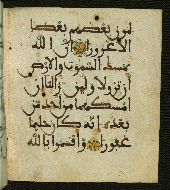 لمون بعضهم بعضا
إلا غرورا إن الله
يمسك السموت والأرض
أن تزولا ولين زالتا إن
أمسكهما من أحد من
بعده إنه كان حليما
غفورا وأقسموا بالله